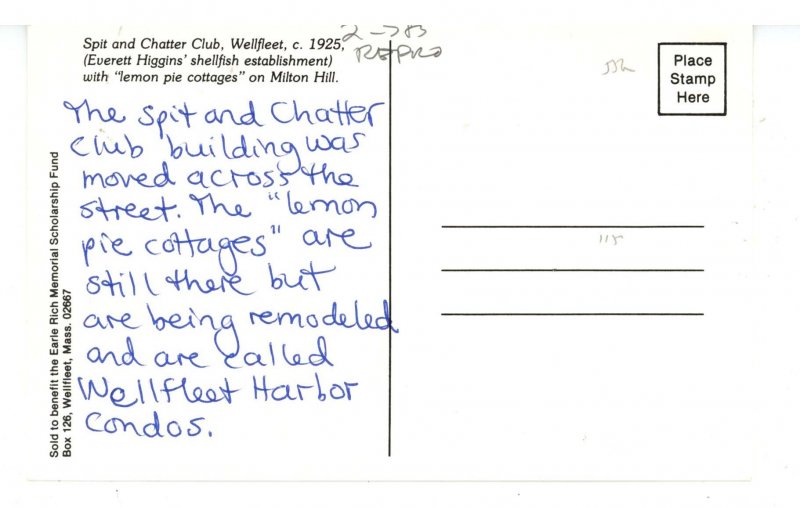 Spit and Chatter Club, Wellfleet, c. 1925,
(Everett Higgins' shellfish establishment)
with "lemon pie cottages" on Milton Hill.
REPRO
Place
Stamp
Here
The Spit and Chatter
Club building was
moved across the
street. The "lemon
pie cottages" are
still there but
are being remodeled
and are called
Wellfleet Harbor
Condos.
Sold to benefit the Earle Rich Memorial Scholarship Fund
Box 126, Wellfleet, Mass. 02667